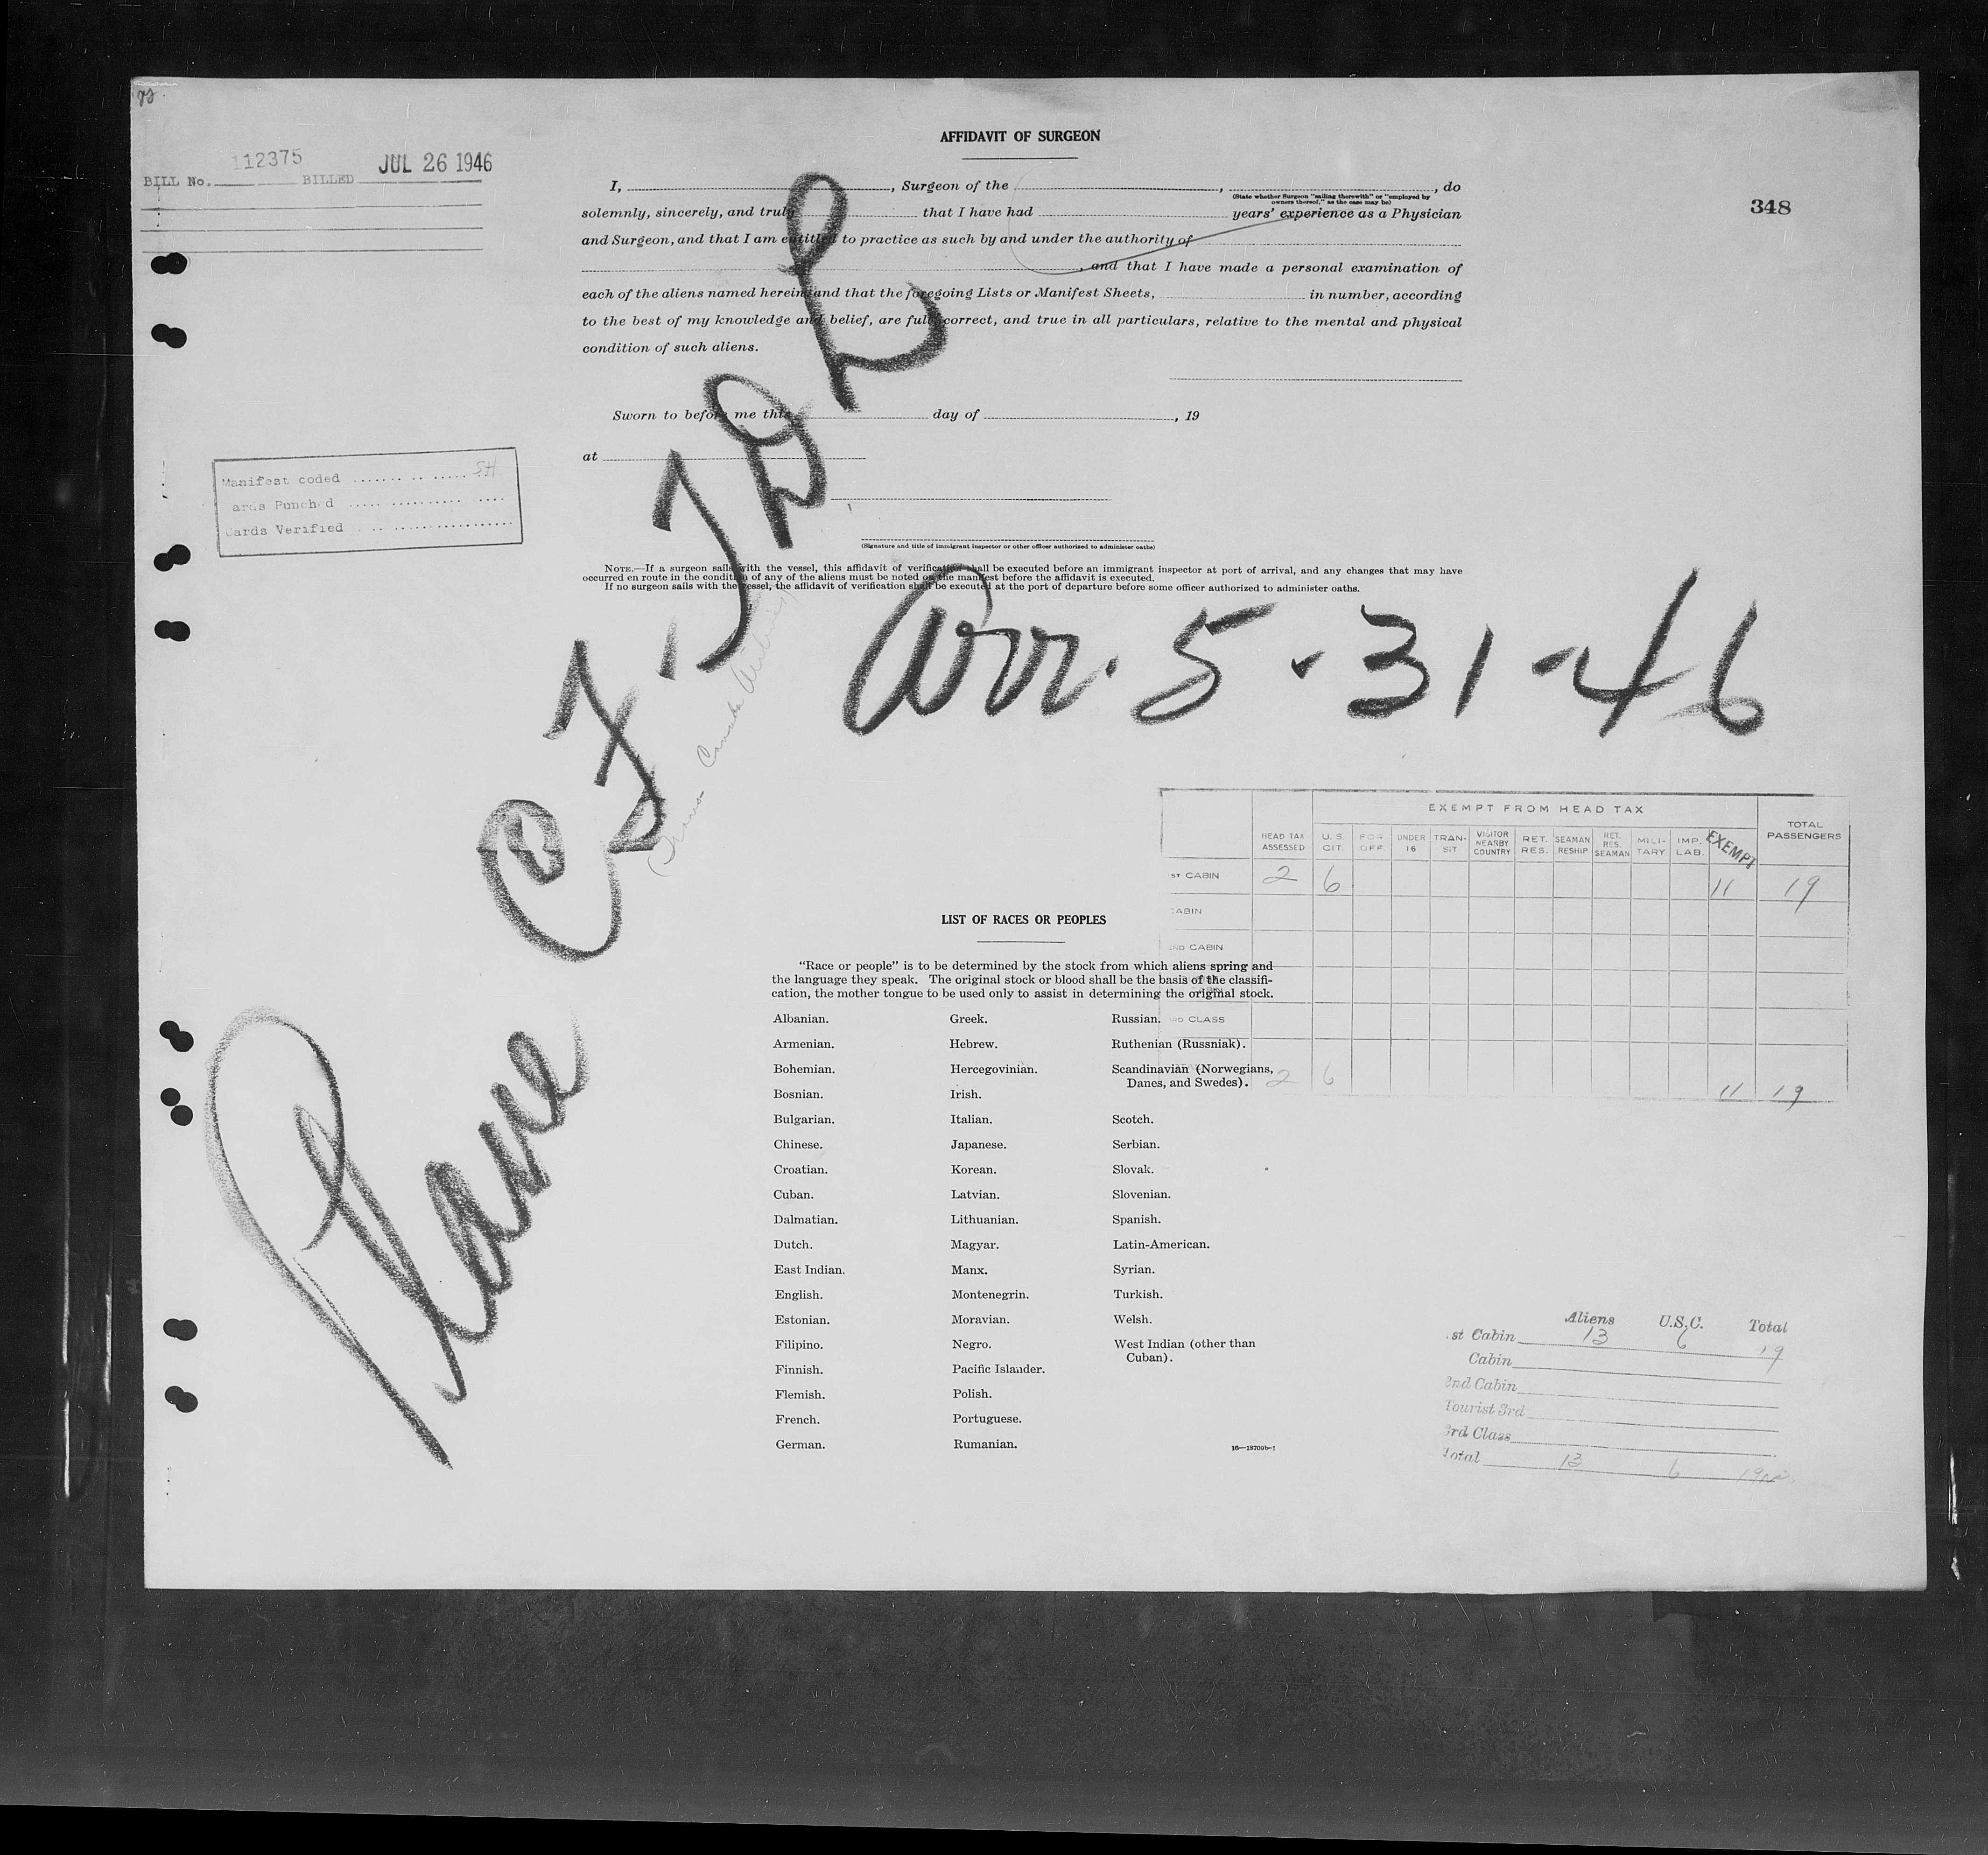 AFFIDAVIT OF SURGEON
112375 JUL 26 1946
BILL No. BILLED
348
I, , Surgeon of the , , do
(State whether Surgeon "sailing therewith" or "employed by
owners thereof," as the case may be)
solemnly, sincerely, and truly that I have had years' experience as a Physician
and Surgeon, and that I am entitled to practice as such by and under the authority of
, and that I have made a personal examination of
each of the aliens named herein, and that the foregoing Lists or Manifest Sheets, in number, according
to the best of my knowledge and belief, are full, correct, and true in all particulars, relative to the mental and physical
condition of such aliens.
Sworn to before me this day of , 19
at
Manifest coded SH
ards Punched
Cards Verified
(Signature and title of immigrant inspector or other officer authorized to administer oaths)
NOTE.—If a surgeon sails with the vessel, this affidavit of verification shall be executed before an immigrant inspector at port of arrival, and any changes that may have
occurred en route in the condition of any of the aliens must be noted on the manifest before the affidavit is executed.
If no surgeon sails with the vessel, the affidavit of verification shall be executed at the port of departure before some officer authorized to administer oaths.
Plane CF-TDL
Trans Canada
Arr. 5-31-46
EXEMPT FROM HEAD TAX
HEAD TAX ASSESSED U.S. CIT. FOR OFF. UNDER 16 TRANSIT VISITOR NEARBY COUNTRY RET. RES. SEAMAN RESHIP RET. RES. SEAMAN MILITARY IMP. LAB. EXEMPT TOTAL PASSENGERS
ST CABIN 2 6 11 19
CABIN
2ND CABIN
ND CLASS
2 6 11 19
LIST OF RACES OR PEOPLES
"Race or people" is to be determined by the stock from which aliens spring and
the language they speak. The original stock or blood shall be the basis of the classifi-
cation, the mother tongue to be used only to assist in determining the original stock.
Albanian. Greek. Russian.
Armenian. Hebrew. Ruthenian (Russniak).
Bohemian. Hercegovinian. Scandinavian (Norwegians,
Danes, and Swedes).
Bosnian. Irish.
Bulgarian. Italian. Scotch.
Chinese. Japanese. Serbian.
Croatian. Korean. Slovak.
Cuban. Latvian. Slovenian.
Dalmatian. Lithuanian. Spanish.
Dutch. Magyar. Latin-American.
East Indian. Manx. Syrian.
English. Montenegrin. Turkish.
Estonian. Moravian. Welsh.
Filipino. Negro. West Indian (other than
Cuban).
Finnish. Pacific Islander.
Flemish. Polish.
French. Portuguese.
German. Rumanian.
16—18709b-1
Aliens U.S.C. Total
st Cabin 13 6 19
Cabin
2nd Cabin
Tourist 3rd
3rd Class
Total 13 6 19